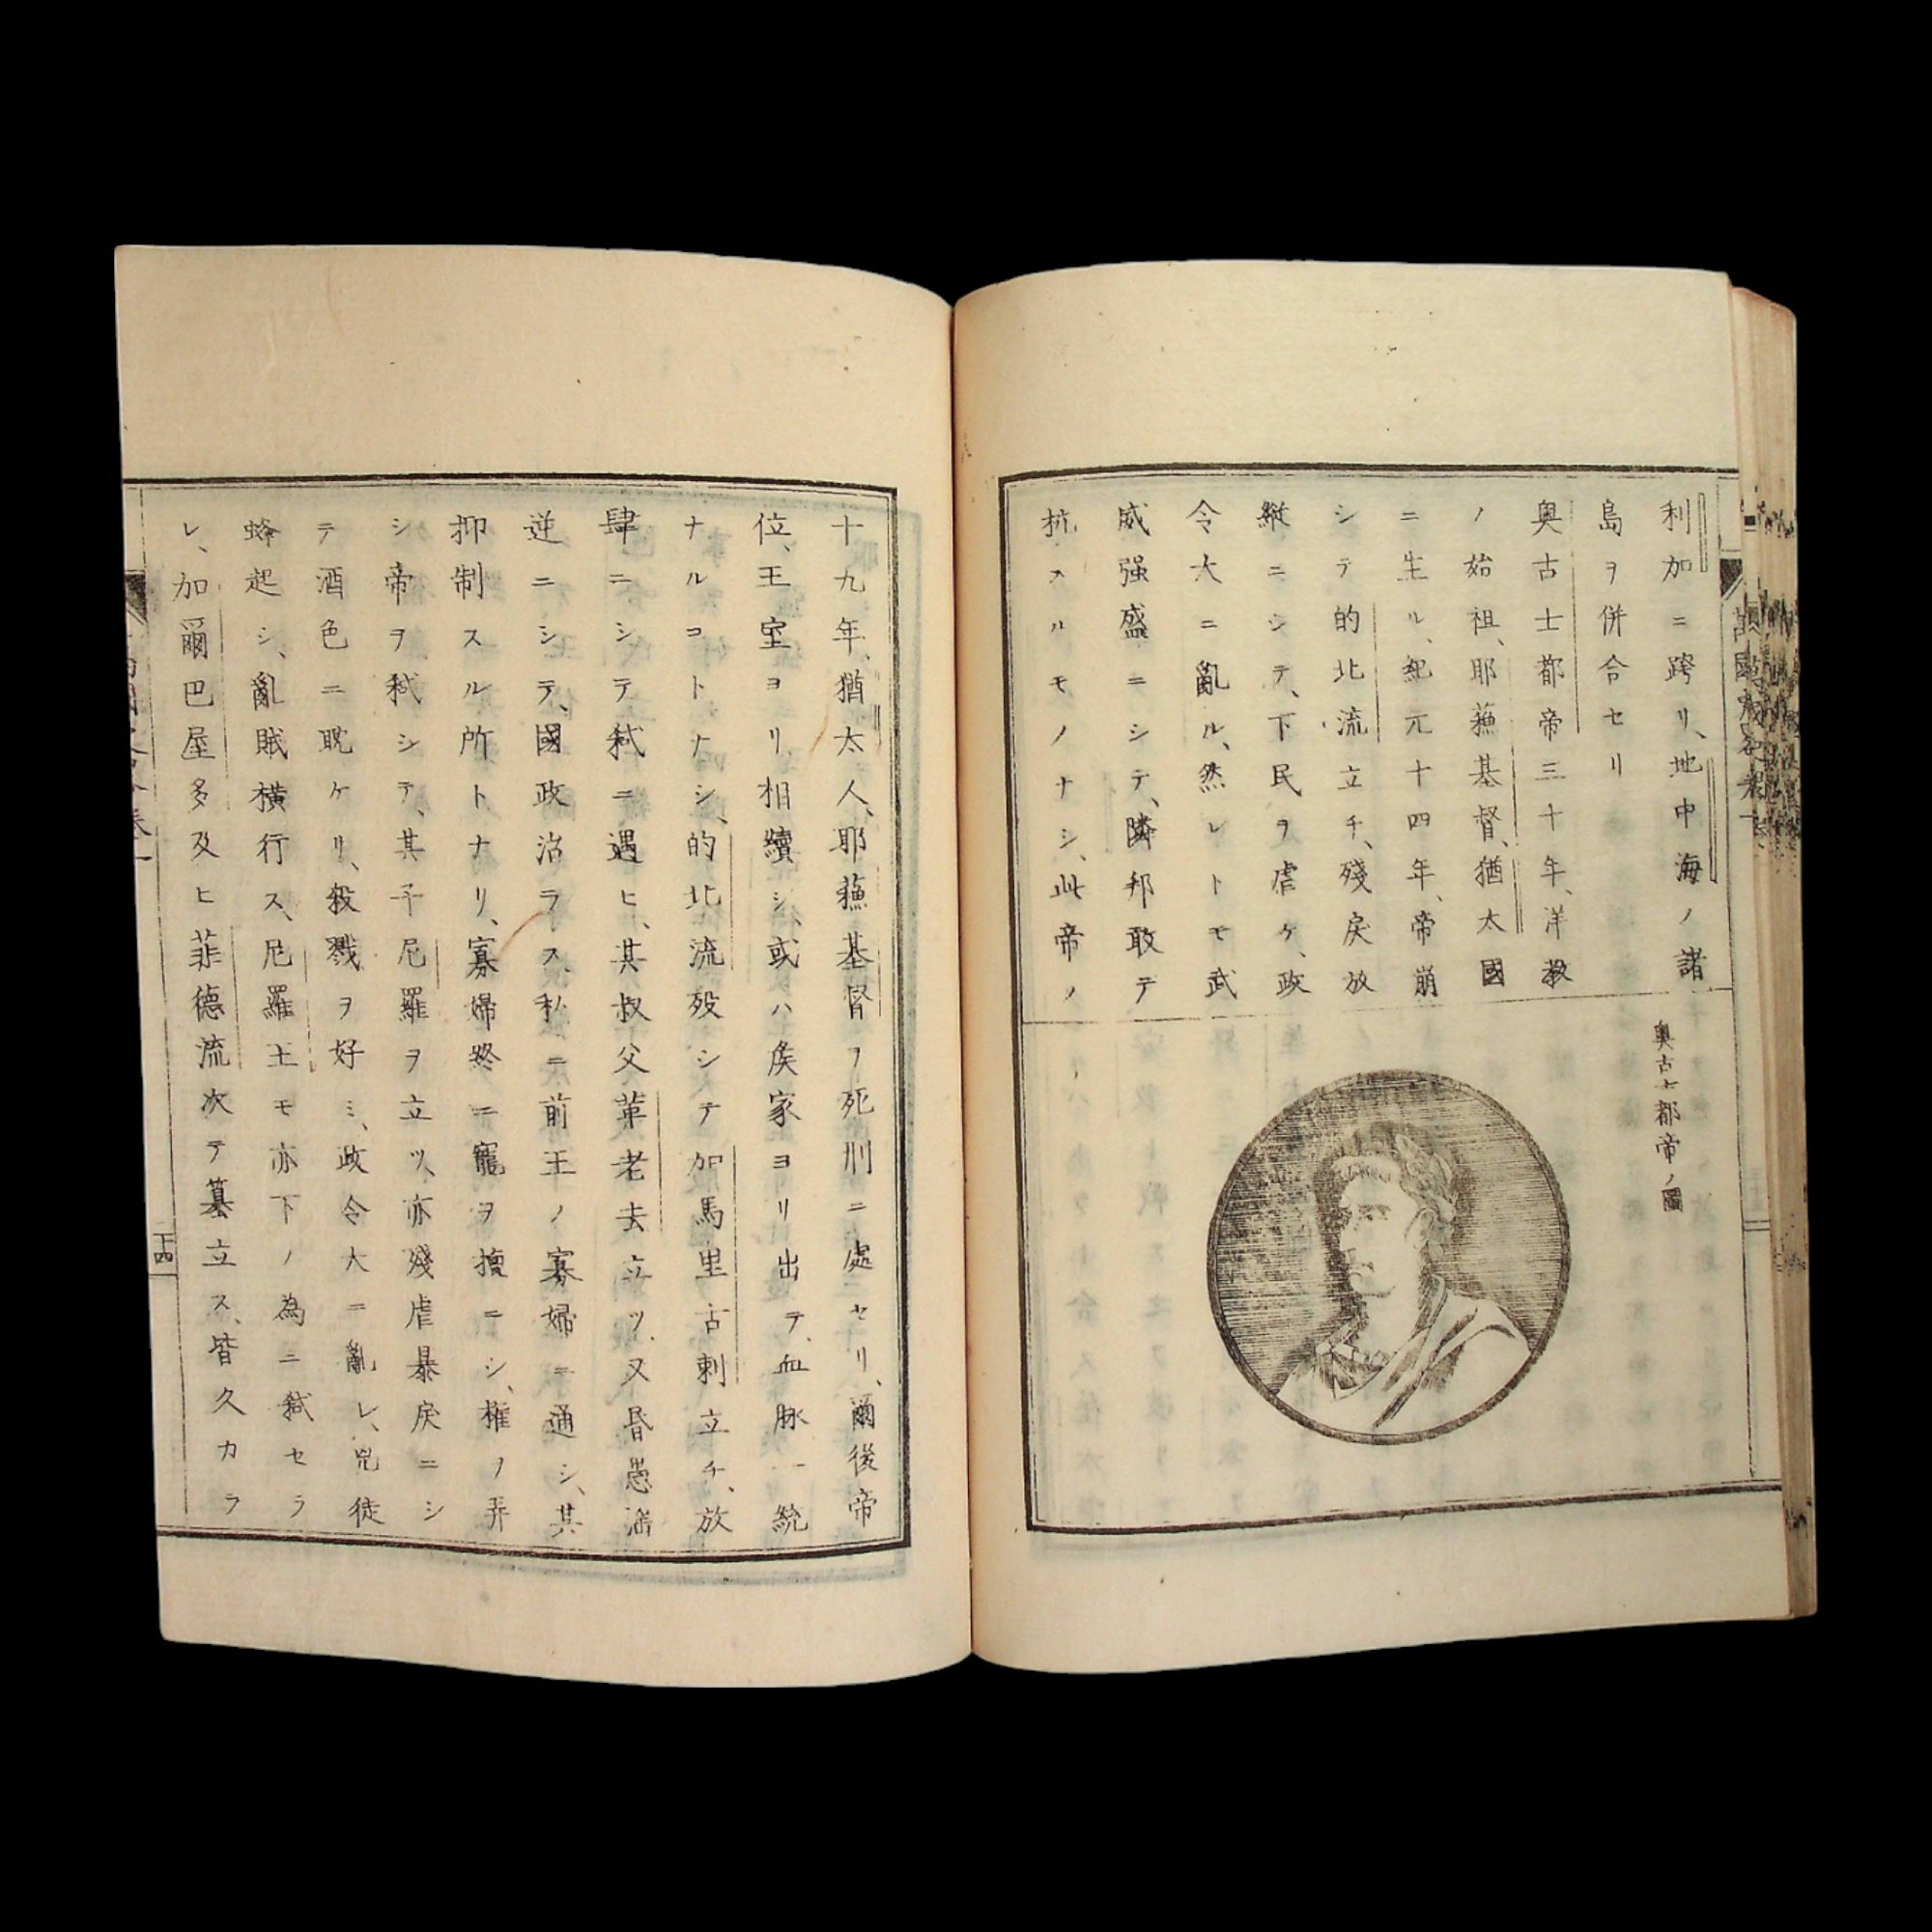 利加ニ跨リ、地中海ノ諸
島ヲ併合セリ
奥古士都帝三十年、洋教
ノ始祖、耶蘓基督、猶太國
ニ生ル、紀元十四年、帝崩
シテ的北流立チ、殘戻放
縦ニシテ、下民ヲ虐ケ、政
令大ニ亂ル、然レトモ武
威强盛ニシテ、隣邦敢テ
抗スルモノナシ、此帝ノ
奥古士都帝ノ圖
十九年、猶太人、耶蘓基督ヲ死刑ニ處セリ、爾後帝
位、王室ヨリ相續シ、或ハ侯家ヨリ出テ、血脉一統
ナルコトナシ、的北流歿シテ加馬里古剌立チ、放
肆ニシテ弑ニ遇ヒ、其叔父革老夫立ツ、又昏愚滛
逆ニシテ、國政治ラス、私ニ前王ノ寡婦ニ通シ、其
抑制スル所トナリ、寡婦終ニ寵ヲ擅ニシ、權ノ弄
シ帝ヲ弑シテ、其子尼羅ヲ立ツ、亦殘虐暴戻ニシ
テ酒色ニ耽ケリ、殺戮ヲ好ミ、政令大ニ亂レ、兇徒
蜂起シ、亂賊横行ス、尼羅王モ亦下ノ為ニ弑セラ
レ、加爾巴屋多及ヒ菲德流次テ纂立ス、皆久カラ
十四